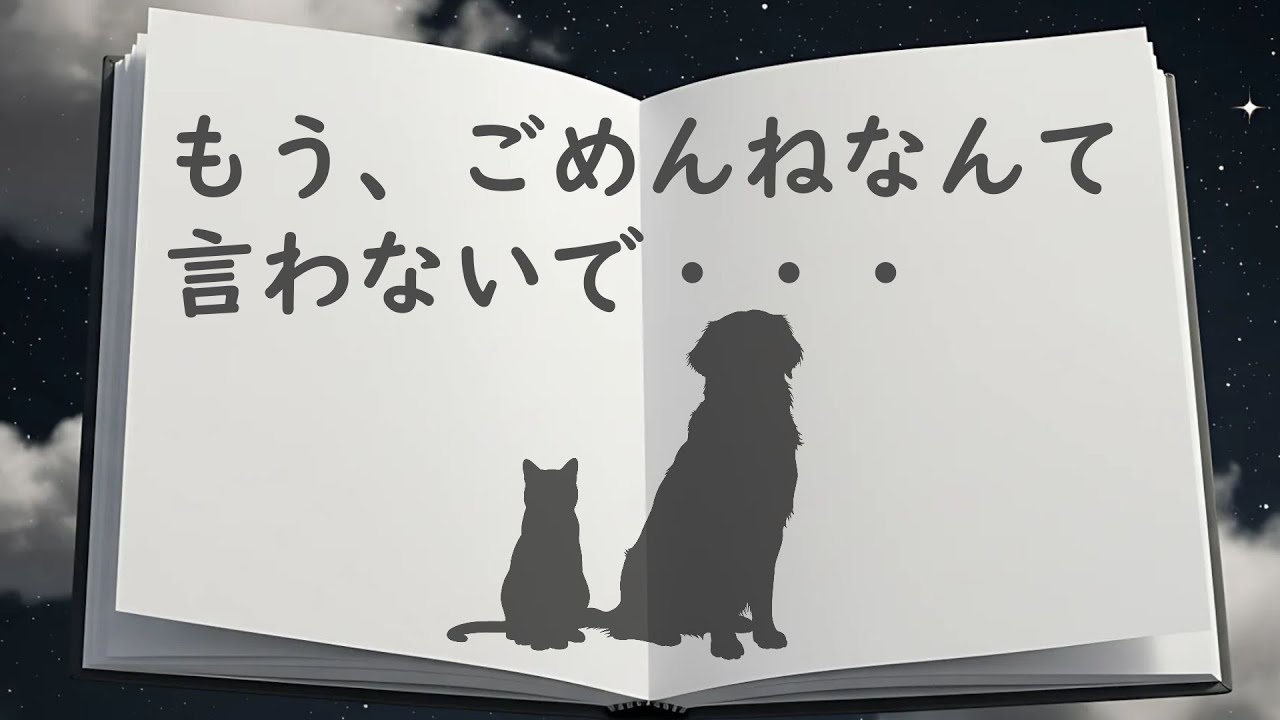 もう、ごめんねなんて
言わないで・・・